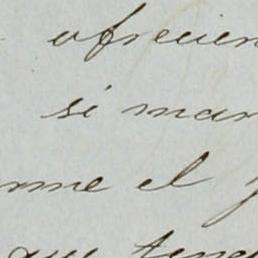 ofrecien
si man
nme el
que tene